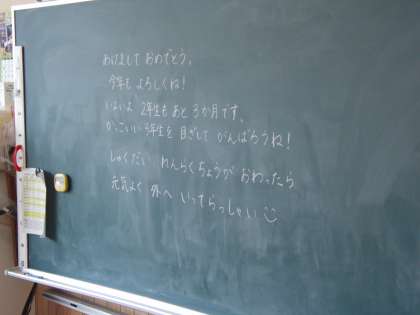 あけまして おめでとう。
今年も よろしくね!
いよいよ 2年生もあと 3か月です。
かっこいい3年生を 目ざして がんばろうね!
しゅくだい れんらくちょうが おわったら
元気よく 外へ いってらっしゃい